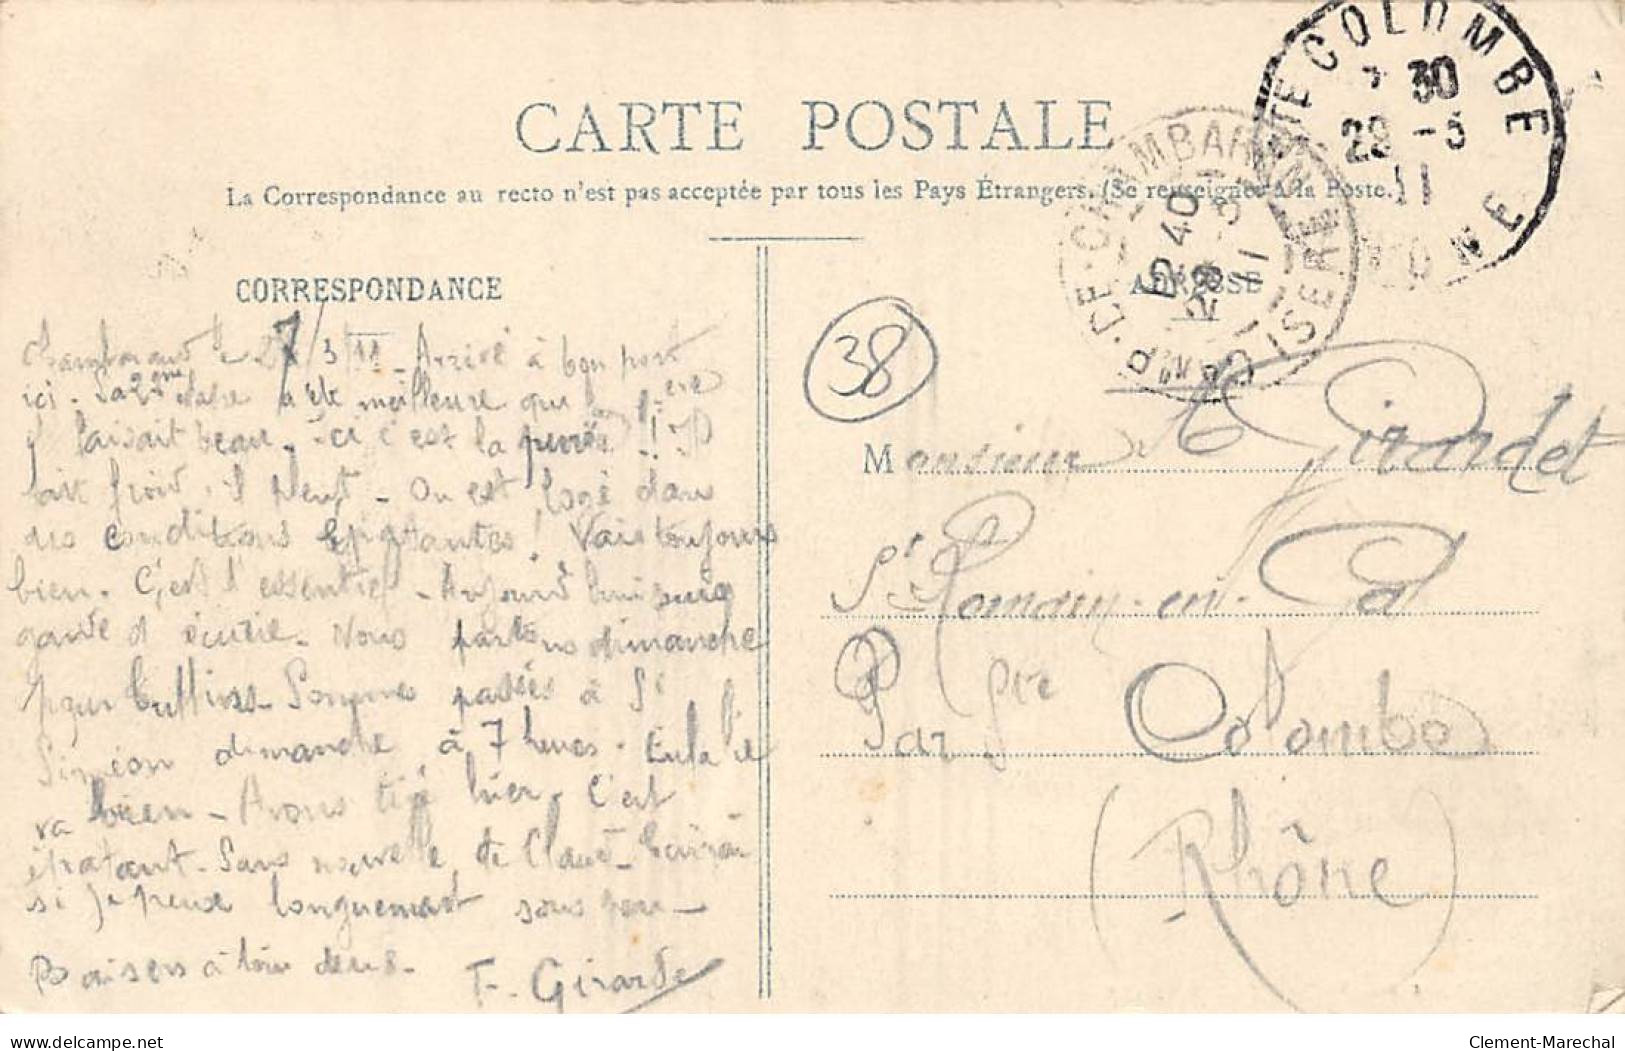 CARTE POSTALE
La Correspondance au recto n'est pas acceptée par tous les Pays Étrangers. (Se renseigner à la Poste.)
STE COLOMBE
7 30
29 -3
11
RHONE
CAMP-DE-CHAMBARAN
ISERE
12 40
28 -3
11
CORRESPONDANCE
Chambarand le 27/3/11 - Arrivé à bon port
ici. La 2ème étape a été meilleure que l'1ère
il faisait beau. Ici c'est la purée !! Il
fait froid, il pleut - On est logé dans
des conditions épatantes ! Vais toujours
bien. C'est l'essentiel - Aujourd'hui suis
garde d'écurie. Nous partons dimanche
pour Sommes passés à St
Siméon dimanche à 7 heures.
va bien - Avons tiré hier. C'est
épatant - Sans nouvelle de Claud
si je peux longuement sous peu -
Baisers à tous deux.
F. Girarde
ADRESSE
38
Monsieur Girardet
St Romain-en-Gal
Par Ste Colombe
(Rhône)
www.delcampe.net
Clement-Marechal